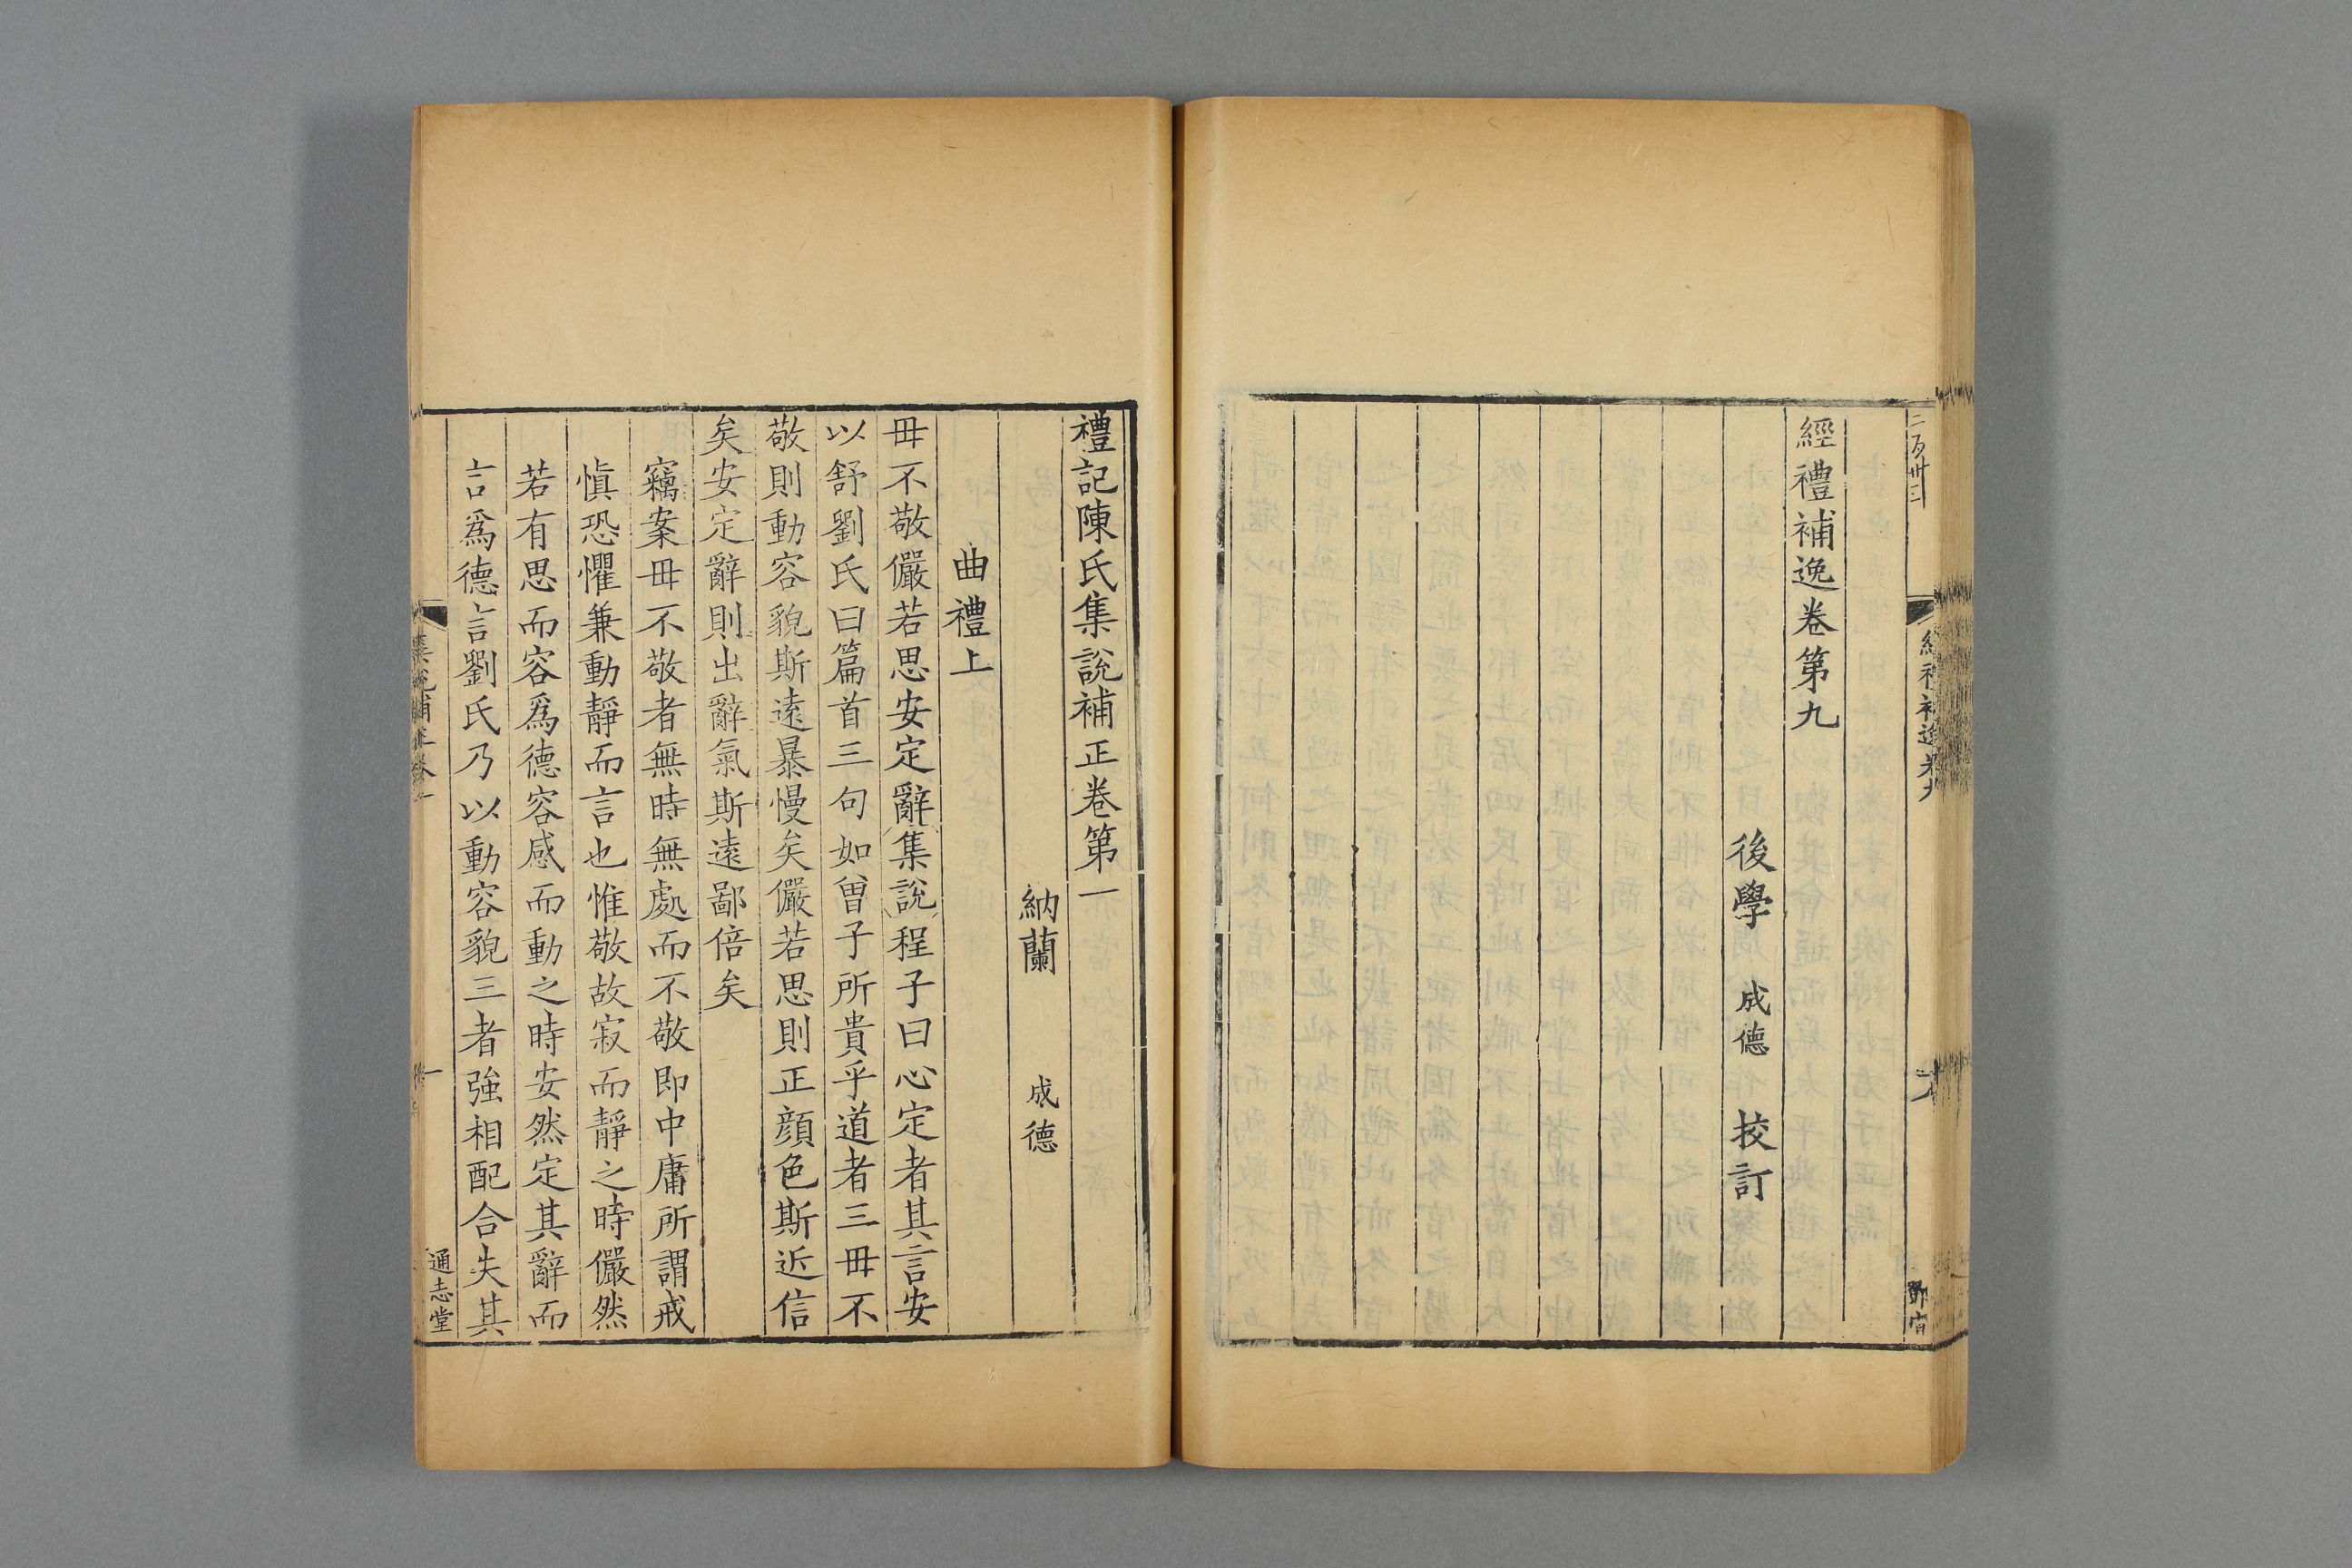 二百卅二
經禮補逸卷九
鄧官
經禮補逸卷第九
後學 成德 挍訂
禮記陳氏集說補正卷第一
納蘭 成德
曲禮上
毋不敬儼若思安定辭集說程子曰心定者其言安
以舒劉氏曰篇首三句如曾子所貴乎道者三毋不
敬則動容貌斯遠暴慢矣儼若思則正顔色斯近信
矣安定辭則出辭氣斯遠鄙倍矣
竊案毋不敬者無時無處而不敬即中庸所謂戒
慎恐懼兼動靜而言也惟敬故寂而靜之時儼然
若有思而容爲德容感而動之時安然定其辭而
言爲德言劉氏乃以動容貌三者強相配合失其
集說補正卷一
一
通志堂